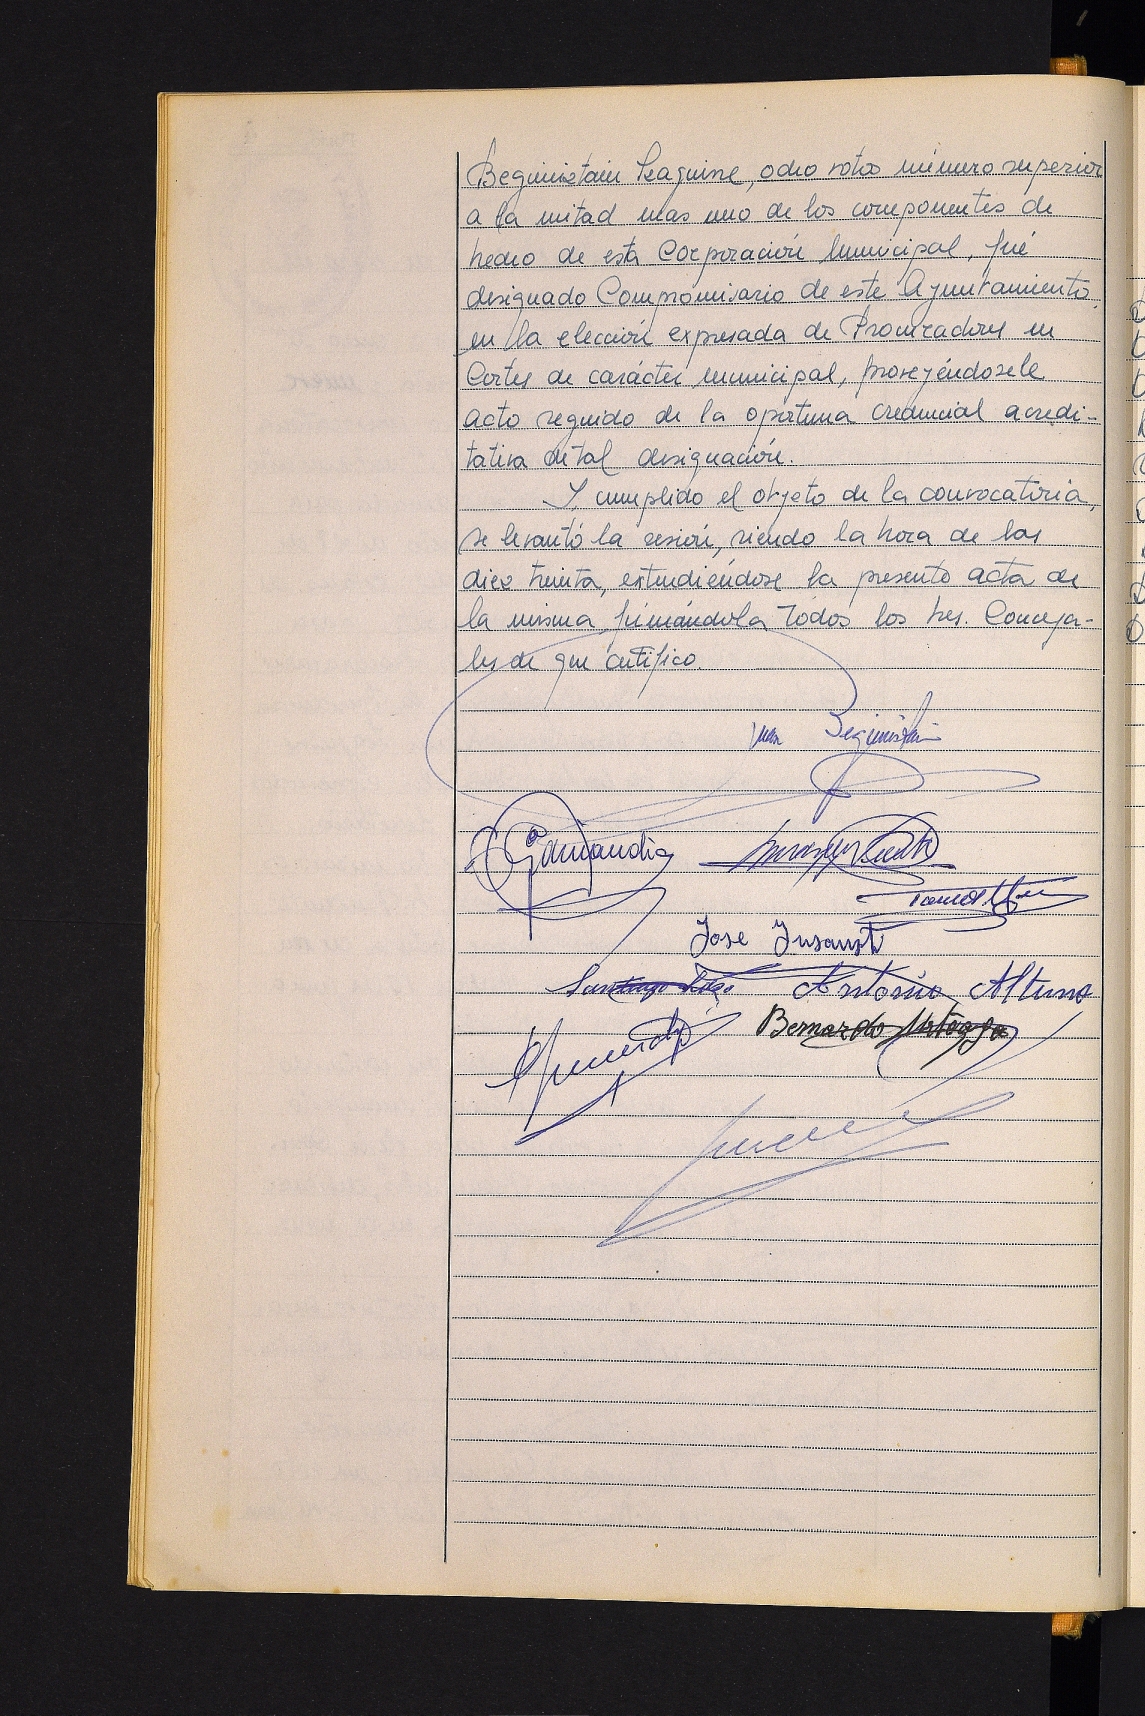 Beguiristain Izaguirre, ocho votos número superior
a la mitad mas uno de los componentes de
hecho de esta Corporación Municipal, fué
designado Compromisario de este Ayuntamiento,
en la elección expresada de Procuradores en
Cortes de carácter municipal, proveyéndosele
acto seguido de la oportuna credencial acredi-
tativa de tal designación.
Y, cumplido el objeto de la convocatoria,
se levantó la sesión, siendo la hora de las
diez treinta, extendiéndose la presente acta de
la misma firmándola todos los Sres. Conceja-
les de que certifico.
Juan Beguiristain
Garmendia
Jose Insausti
Santiago
Antonio Altuna
Bernardo